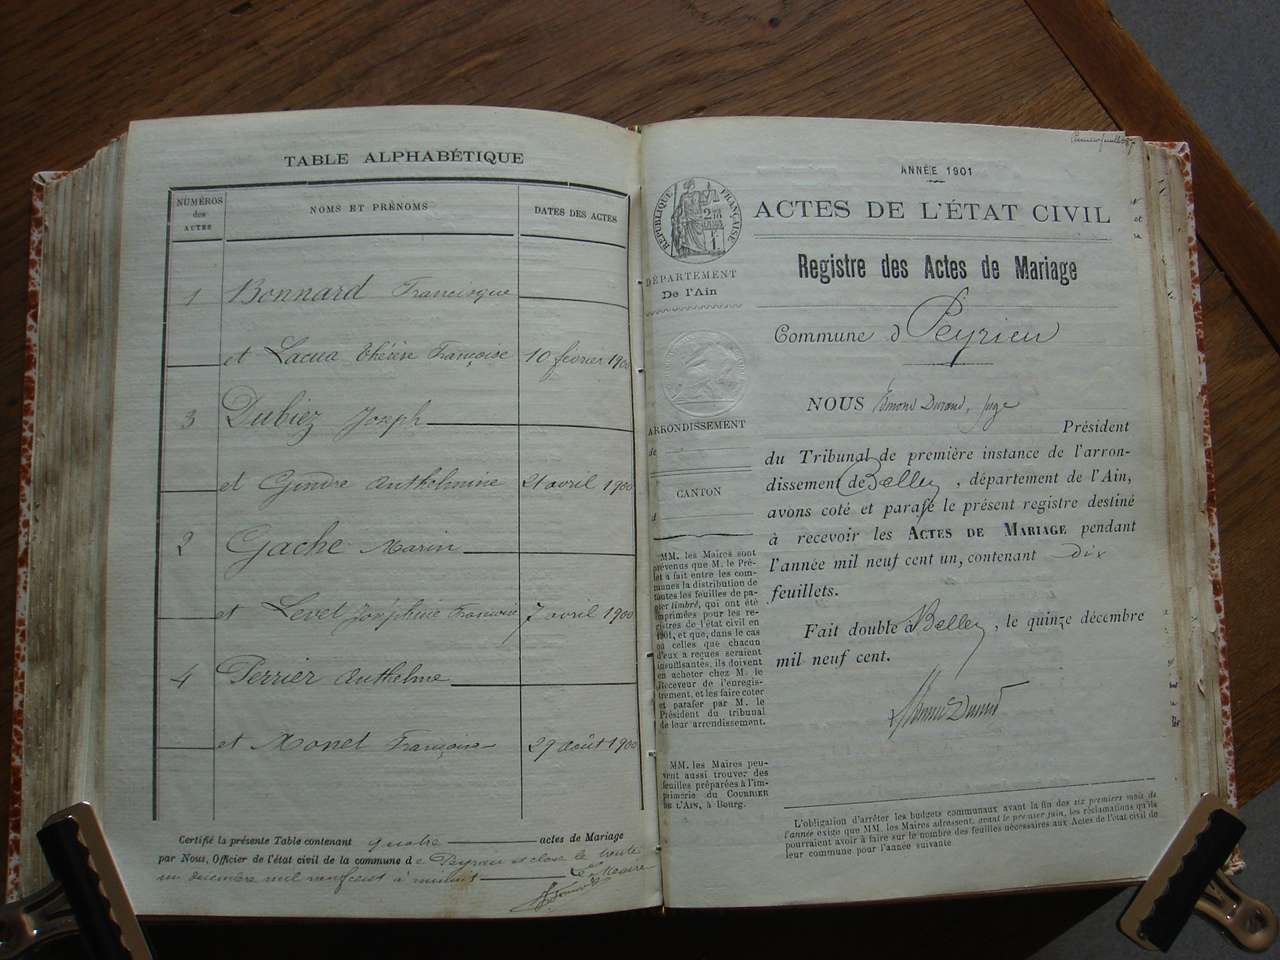 TABLE ALPHABÉTIQUE
NUMÉROS
des
ACTES
NOMS ET PRÉNOMS
DATES DES ACTES
1 Bonnard Francisque
et Lacua Thérèse Françoise 10 février 1900
3 Dubiez Joseph
et Gindre Anthelmine 21 avril 1900
2 Gache Marin
et Levet Joséphine Françoise 7 avril 1900
4 Perrier Anthelme
et Monet Françoise 29 août 1900
Certifié la présente Table contenant quatre actes de Mariage
par Nous, Officier de l'état civil de la commune de Peyrieu et close le trente
un décembre mil neuf cent à minuit
Le Maire
Premier feuillet
ANNÉE 1901
RÉPUBLIQUE FRANÇAISE
ACTES DE L'ÉTAT CIVIL
Registre des Actes de Mariage
DÉPARTEMENT
De l'Ain
Commune d Peyrieu
ARRONDISSEMENT
de
CANTON
d
NOUS Edmond Durand, juge
Président
du Tribunal de première instance de l'arron-
dissement de Belley, département de l'Ain,
avons coté et parafé le présent registre destiné
à recevoir les ACTES DE MARIAGE pendant
l'année mil neuf cent un, contenant dix
feuillets.
Fait double à Belley, le quinze décembre
mil neuf cent.
MM. les Maires sont
prévenus que M. le Pré-
fet a fait entre les com-
munes la distribution de
toutes les feuilles de pa-
pier timbré, qui ont été
imprimées pour les re-
gistres de l'état civil en
1901, et que, dans le cas
où celles que chacun
d'eux a reçues seraient
insuffisantes, ils doivent
en acheter chez M. le
Receveur de l'enregis-
trement, et les faire coter
et parafer par M. le
Président du tribunal
de leur arrondissement.
MM. les Maires peu-
vent aussi trouver des
feuilles préparées à l'im-
primerie du COURRIER
DE L'AIN, à Bourg.
L'obligation d'arrêter les budgets communaux avant la fin des six premiers mois de
l'année exige que MM. les Maires adressent, avant le premier juin, les réclamations qu'ils
pourraient avoir à faire sur le nombre des feuilles nécessaires aux Actes de l'état civil de
leur commune pour l'année suivante